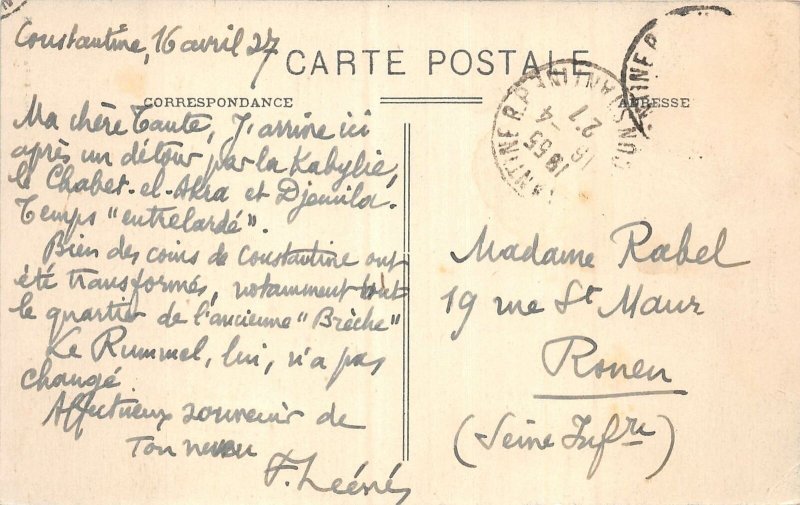 Constantine, 16 avril 27
CARTE POSTALE
CORRESPONDANCE
ADRESSE
Ma chère Tante, J'arrive ici
après un détour par la Kabylie,
le Chabet-el-Akra et Djemila.
Temps "entrelardé".
Bien des coins de Constantine ont
été transformés, notamment tout
le quartier de l'ancienne "Brèche"
Le Rummel, lui, n'a pas
changé
Affectueux souvenir de
Ton neveu
CONSTANTINE R.P.
1855
16 -4
27
NTINE R.P
Madame Rabel
19 rue St Maur
Rouen
(Seine Infre)